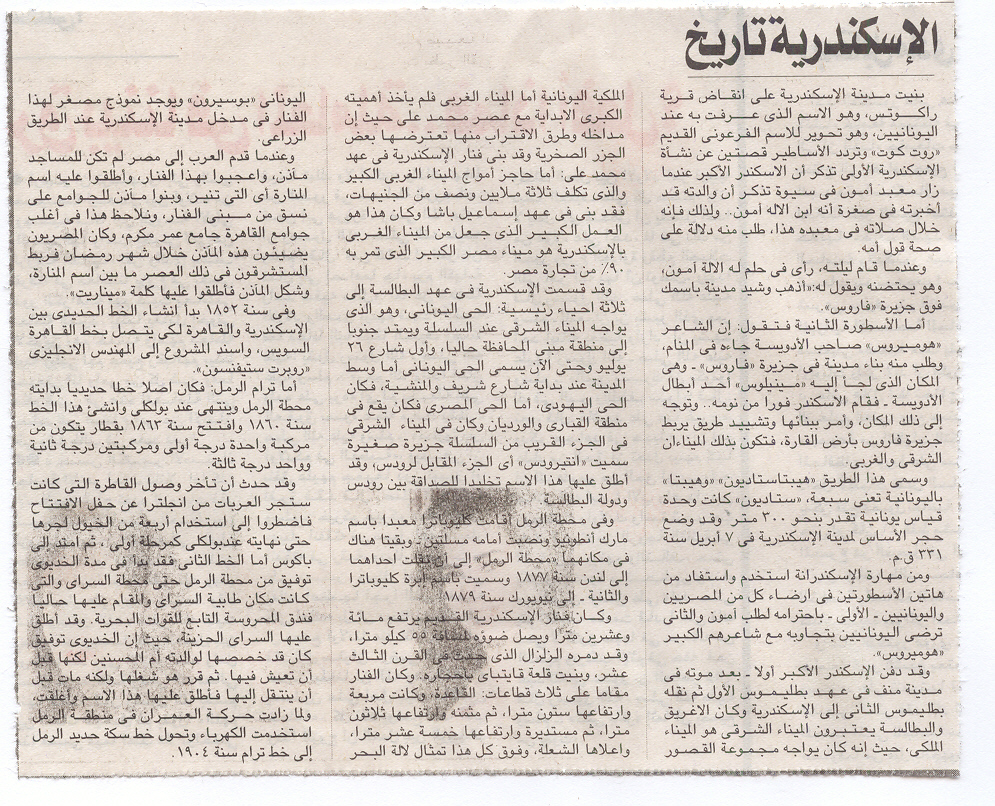 الإسكندرية تاريخ
بنيت مدينة الإسكندرية على انقاض قرية
راكوتس، وهو الاسم الذى عرفت به عند
اليونانيين، وهو تحوير للاسم الفرعونى القديم
«روت كوت» وتردد الأساطير قصتين عن نشأة
الإسكندرية الأولى تذكر أن الاسكندر الأكبر عندما
زار معبد أمون فى سيوة تذكر أن والدته قد
أخبرته فى صغرة أنه ابن الاله أمون.. ولذلك فإنه
خلال صلاته فى معبده هذا، طلب منه دلالة على
صحة قول أمه.
وعندما قام ليلته، رأى فى حلم له الالة أمون،
وهو يحتضنه ويقول له:«أذهب وشيد مدينة باسمك
فوق جزيرة «فاروس».
أما الأسطورة الثانية فتقول: إن الشاعر
«هوميروس» صاحب الأدويسة جاءه فى المنام،
وطلب منه بناء مدينة فى جزيرة «فاروس» ـ وهى
المكان الذى لجأ إليه «مينيلوس» أحد أبطال
الأدويسة ـ فقام الأسكندر فورا من نومه.. وتوجه
إلى ذلك المكان، وأمر ببنائها وتشييد طريق يربط
جزيرة فاروس بأرض القارة، فتكون بذلك الميناءان
الشرقى والغربى.
وسمى هذا الطريق «هيبتاستاديون» «وهيبتا»
باليونانية تعنى سبعة، «ستاديون» كانت وحدة
قياس يونانية تقدر بنحو ٣٠٠ متر، وقد وضع
حجر الأساس لمدينة الإسكندرية فى ٧ أبريل سنة
٣٣١ ق.م.
ومن مهارة الإسكندرانة استخدم واستفاد من
هاتين الأسطورتين فى ارضاء كل من المصريين
واليونانيين ـ الأولى ـ باحترامه لطب أمون والثانى
ترضى اليونانيين بتجاوبه مع شاعرهم الكبير
«هوميروس».
وقد دفن الإسكندر الأكبر أولا ـ بعد موته فى
مدينة منف فى عهد بطليموس الأول ثم نقله
بطليموس الثانى إلى الإسكندرية وكان الاغريق
والبطالسة يعتبرون الميناء الشرقى هو الميناء
الملكى، حيث إنه كان يواجه مجموعة القصور
الملكية اليونانية أما الميناء الغربى فلم يأخذ أهميته
الكبرى الابداية مع عصر محمد على حيث إن
مداخله وطرق الاقتراب منها تعترضها بعض
الجزر الصخرية وقد بنى فنار الإسكندرية فى عهد
محمد على: أما حاجز أمواج الميناء الغربى الكبير
والذى تكلف ثلاثة ملايين ونصف من الجنيهات،
فقد بنى فى عهد إسماعيل باشا وكان هذا هو
العمل الكبير الذى جعل من الميناء الغربى
بالإسكندرية هو ميناء مصر الكبير الذى تمر به
٩٠٪ من تجارة مصر.
وقد قسمت الإسكندرية فى عهد البطالسة إلى
ثلاثة احياء رئيسية: الحى اليونانى، وهو الذى
يواجه الميناء الشرقى عند السلسلة ويمتد جنوبا
إلى منطقة مبنى المحافظة حاليا، وأول شارع ٢٦
يوليو وحتى الآن يسمى الحى اليونانى أما وسط
المدينة عند بداية شارع شريف والمنشية، فكان
الحى اليهودى، أما الحى المصرى فكان يقع فى
منطقة القبارى والورديان وكان فى الميناء الشرقى
فى الجزء القريب من السلسلة جزيرة صغيرة
سميت «انتيرودس» أى الجزء المقابل لرودس، وقد
أطلق عليها هذا الاسم تخليدا للصداقة بين رودس
ودولة البطالسة.
وفى محطة الرمل اقامت كليوباترا معبدا باسم
مارك أنطونيو ونصبت أمامه مسلتين ـ وبقيتا هناك
فى مكانهما «محطة الرمل» إلى ان نقلت احداهما
إلى لندن سنة ١٨٧٧ وسميت باسم إبرة كليوباترا
والثانية ـ إلى نيويورك سنة ١٨٧٩.
وكان فنار الإسكندرية القديم يرتفع مائة
وعشرين مترا ويصل ضوؤه لمسافة ٥٥ كيلو مترا،
وقد دمره الزلزال الذى حدث فى القرن الثالث
عشر، وبنيت قلعة قايتباى بأحجاره، وكان الفنار
مقاما على ثلاث قطاعات: القاعدة، وكانت مربعة
وارتفاعها ستون مترا، ثم مثمنه وارتفاعها ثلاثون
مترا، ثم مستديرة وارتفاعها خمسة عشر مترا،
واعلاها الشعلة، وفوق كل هذا تمثال لالة البحر
اليونانى «بوسيرون» ويوجد نموذج مصغر لهذا
الفنار فى مدخل مدينة الإسكندرية عند الطريق
الزراعى.
وعندما قدم العرب إلى مصر لم تكن للمساجد
مآذن، واعجبوا بهذا الفنار، وأطلقوا عليه اسم
المنارة أى التى تنير، وبنوا مآذن للجوامع على
نسق من مبنى الفنار، ونلاحظ هذا فى أغلب
جوامع القاهرة جامع عمر مكرم، وكان المصريون
يضيئون هذه المآذن خلال شهر رمضان فربط
المستشرقون فى ذلك العصر ما بين اسم المنارة،
وشكل المآذن فأطلقوا عليها كلمة «ميناريت».
وفى سنة ١٨٥٢ بدأ انشاء الخط الحديدى بين
الإسكندرية والقاهرة لكى يتصل بخط القاهرة
السويس، واسند المشروع إلى المهندس الانجليزى
«روبرت ستيفنسون»
أما ترام الرمل: فكان اصلا خطا حديديا بدايته
محطة الرمل وينتهى عند بولكلى وانشئ هذا الخط
سنة ١٨٦٠ وافتتح سنة ١٨٦٣ بقطار يتكون من
مركبة واحدة درجة أولى ومركبتين درجة ثانية
وواحد درجة ثالثة.
وقد حدث أن تأخر وصول القاطرة التى كانت
ستجر العربات من انجلترا عن حفل الافتتاح
فاضطروا إلى استخدام أربعة من الخيول لجرها
حتى نهايته عندبولكلى كمرحلة أولى ، ثم امتد إلى
باكوس أما الخط الثانى فقد بدأ فى مدة الخديوى
توفيق من محطة الرمل حتى محطة السراى والتى
كانت مكان طابية السراى والمقام عليها حاليا
فندق المحروسة التابع للقوات البحرية. وقد أطلق
عليها السراى الحزينة، حيث إن الخديوى توفيق
كان قد خصصها لوالدته أم المحسنين لكنها قبل
أن تعيش فيها. ثم قرر هو شغلها ولكنه مات قبل
أن ينتقل إليها فأطلق عليها هذا الاسم وأغلقت،
ولما زادت حركة العمران فى منطقة الرمل
استخدمت الكهرباء وتحول خط سكة حديد الرمل
إلى خط ترام سنة ١٩٠٤.